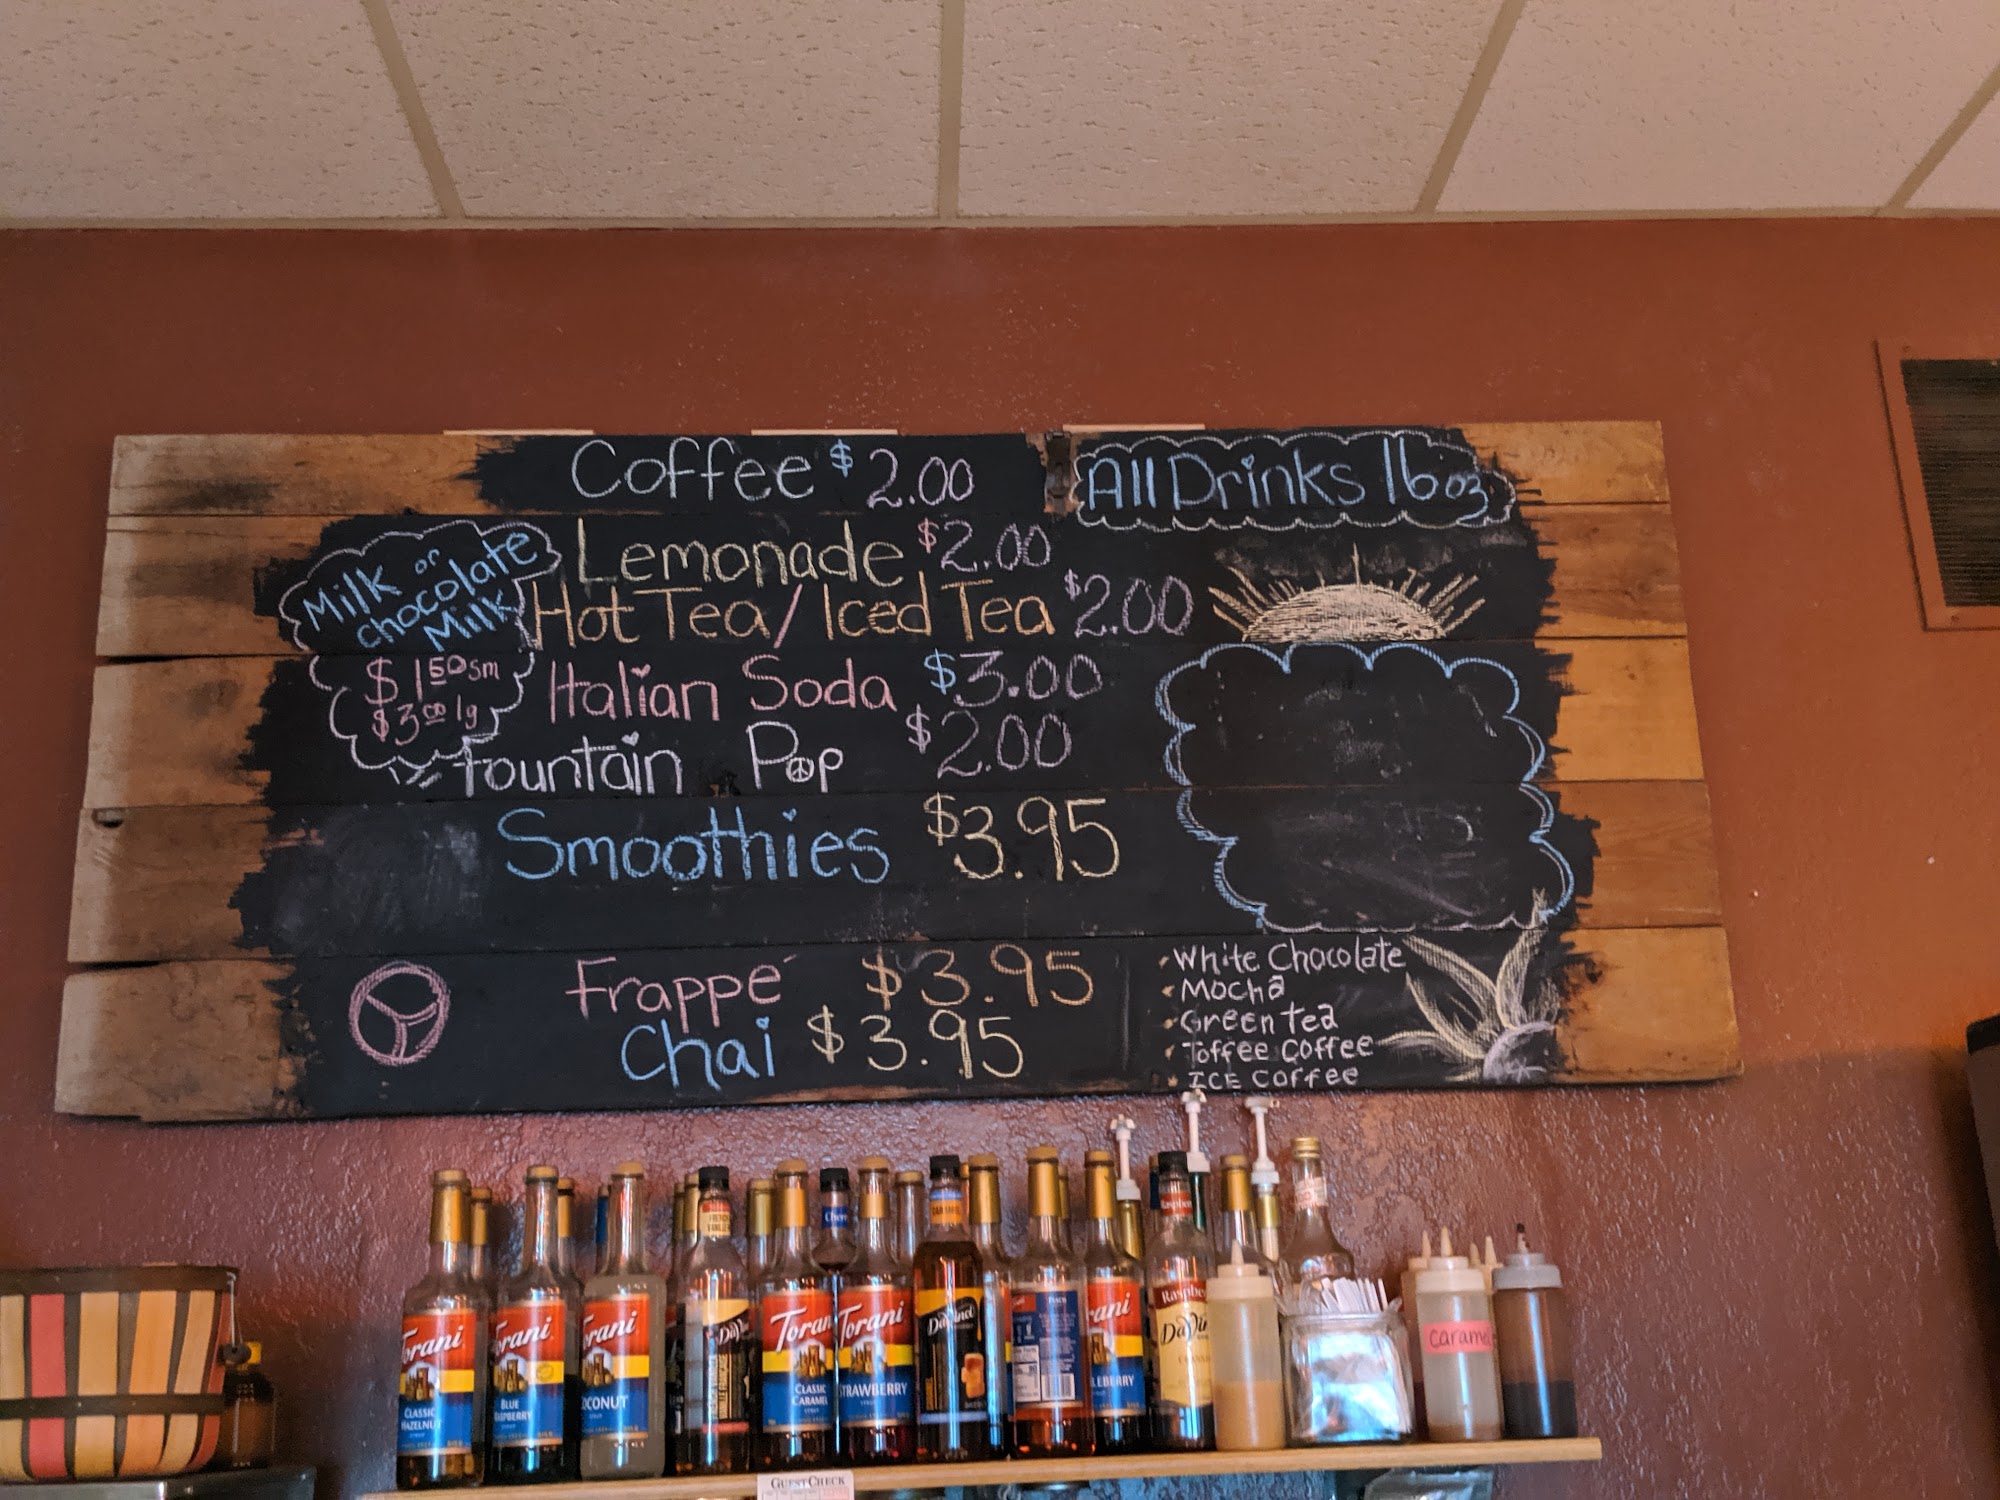 Coffee $2.00
All Drinks 16oz
Lemonade $2.00
Hot Tea / Iced Tea $2.00
Milk or
chocolate
Milk
$1.50 sm
$3.00 lg
Italian Soda $3.00
Fountain Pop $2.00
Smoothies $3.95
Frappé $3.95
Chai $3.95
White Chocolate
Mocha
Green tea
Toffee coffee
ICE coffee
Torani
CLASSIC
HAZELNUT
Torani
BLUE
RASPBERRY
Torani
COCONUT
DaVinci
Torani
CLASSIC
CARAMEL
Torani
STRAWBERRY
CARAMEL
DaVinci
PEACH
Torani
Raspberry
DaVinci
Caramel
GUESTCHECK